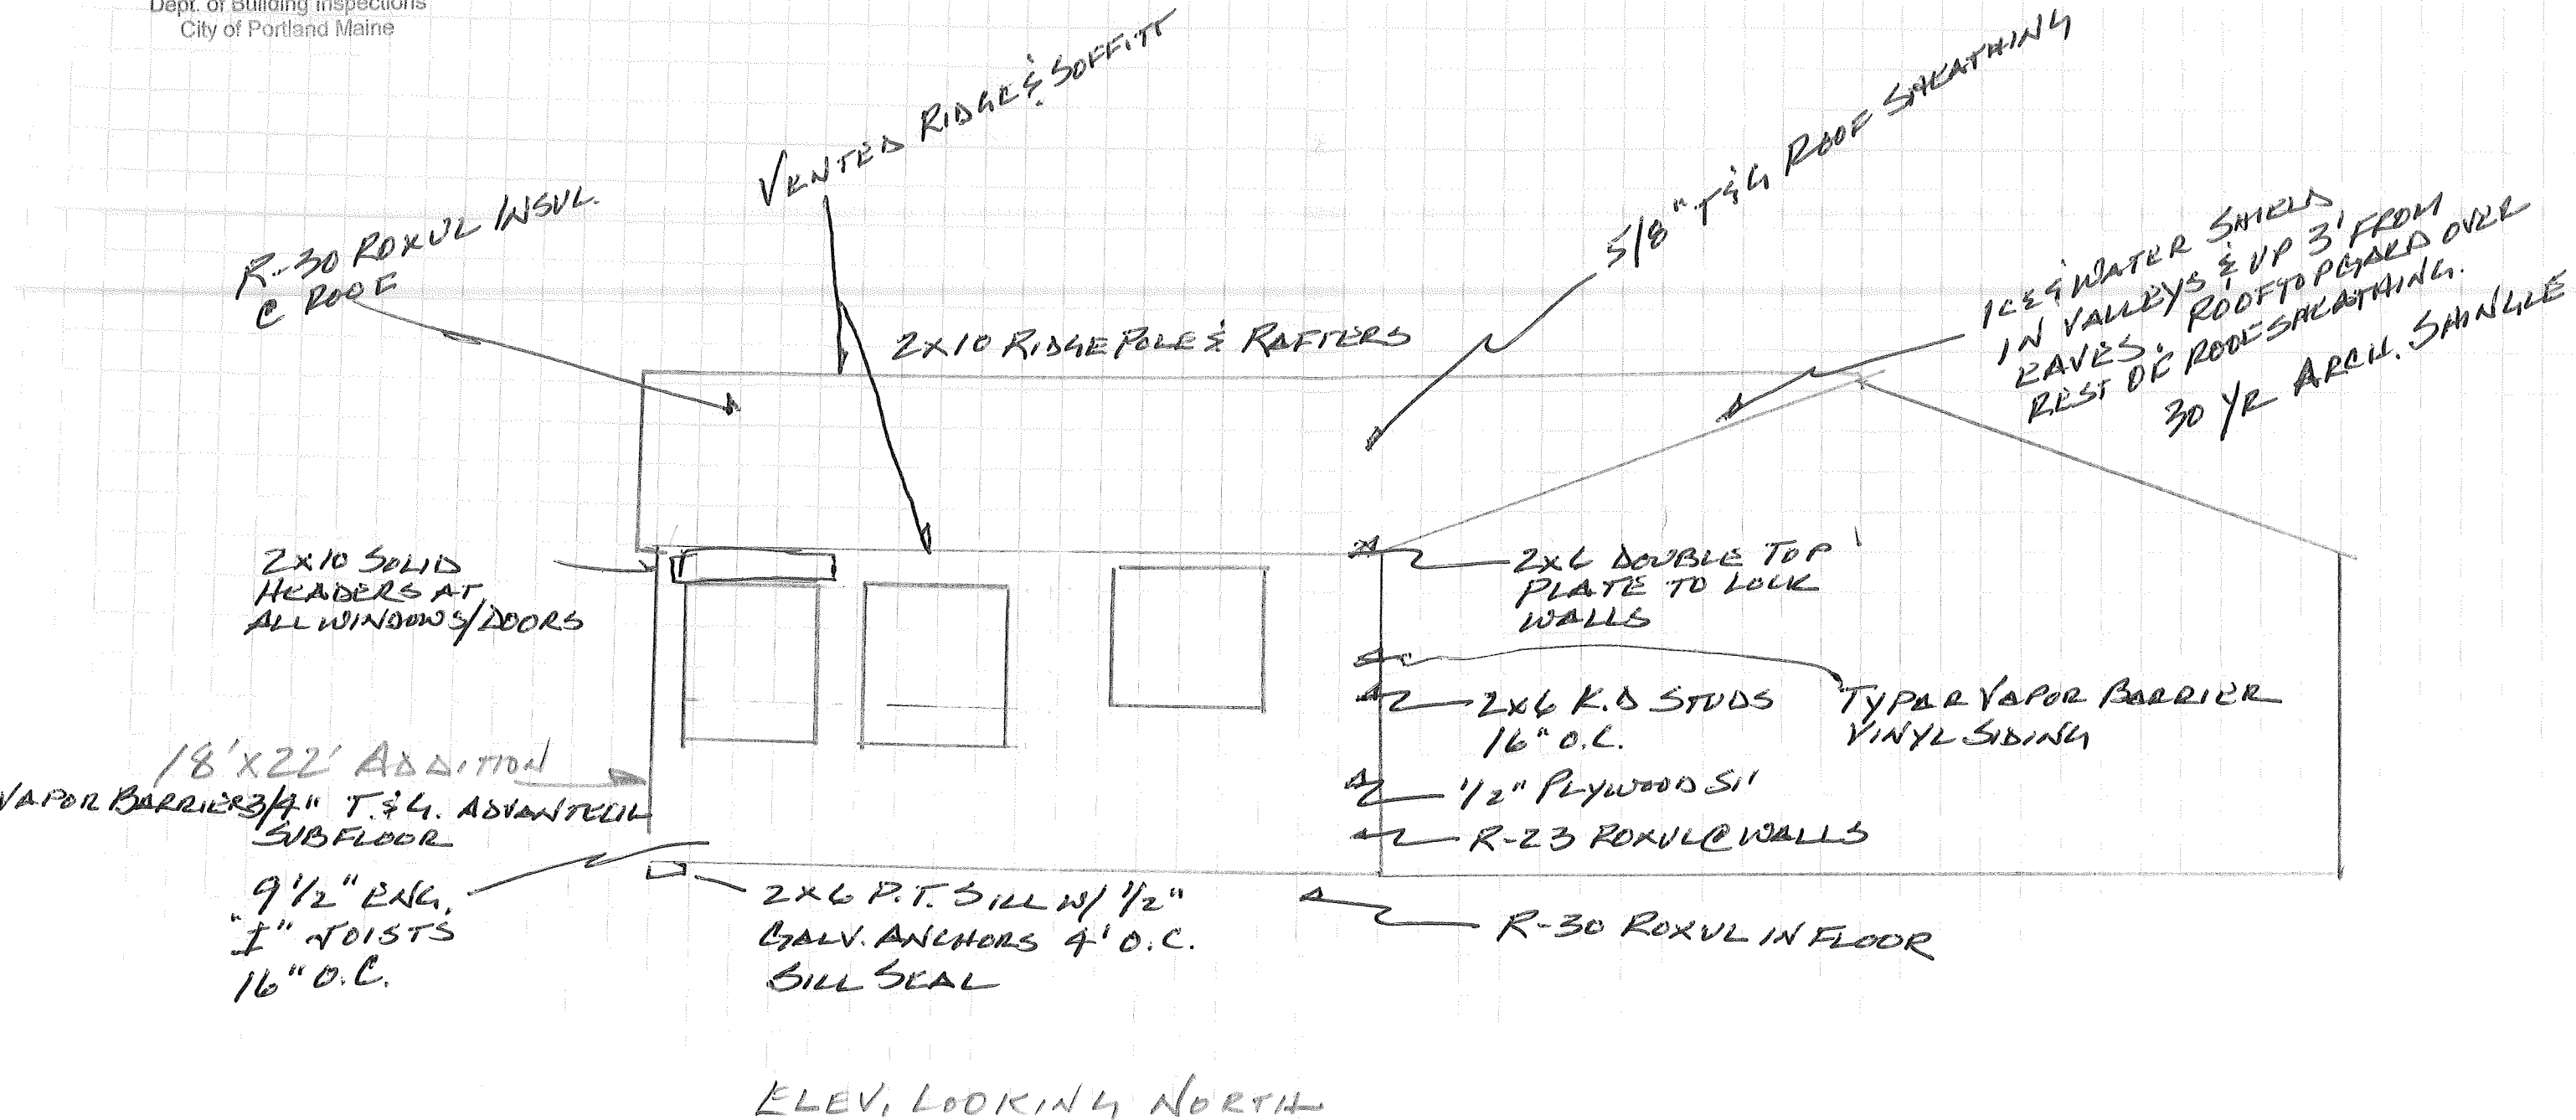 Dept. of Building Inspections
City of Portland Maine
VENTED RIDGE & SOFFITT
5/8" T&G ROOF SHEATHING
R-30 ROXUL INSUL.
@ ROOF
ICE & WATER SHIELD
IN VALLEYS & UP 3' FROM
EAVES. ROOFTOPGARD OVER
REST OF ROOF SHEATHING.
30 YR ARCH. SHINGLE
2x10 RIDGE POLE & RAFTERS
2x10 SOLID
HEADERS AT
ALL WINDOWS/DOORS
2x6 DOUBLE TOP
PLATE TO LOCK
WALLS
2x6 K.D STUDS
16" O.C.
TYPAR VAPOR BARRIER
VINYL SIDING
18' x 22' ADDITION
VAPOR BARRIER 3/4" T.&G. ADVANTECH
SUBFLOOR
1/2" PLYWOOD
R-23 ROXUL @ WALLS
9 1/2" ENG.
"I" JOISTS
16" O.C.
2x6 P.T. SILL W/ 1/2"
GALV. ANCHORS 4' O.C.
SILL SEAL
R-30 ROXUL IN FLOOR
ELEV. LOOKING NORTH